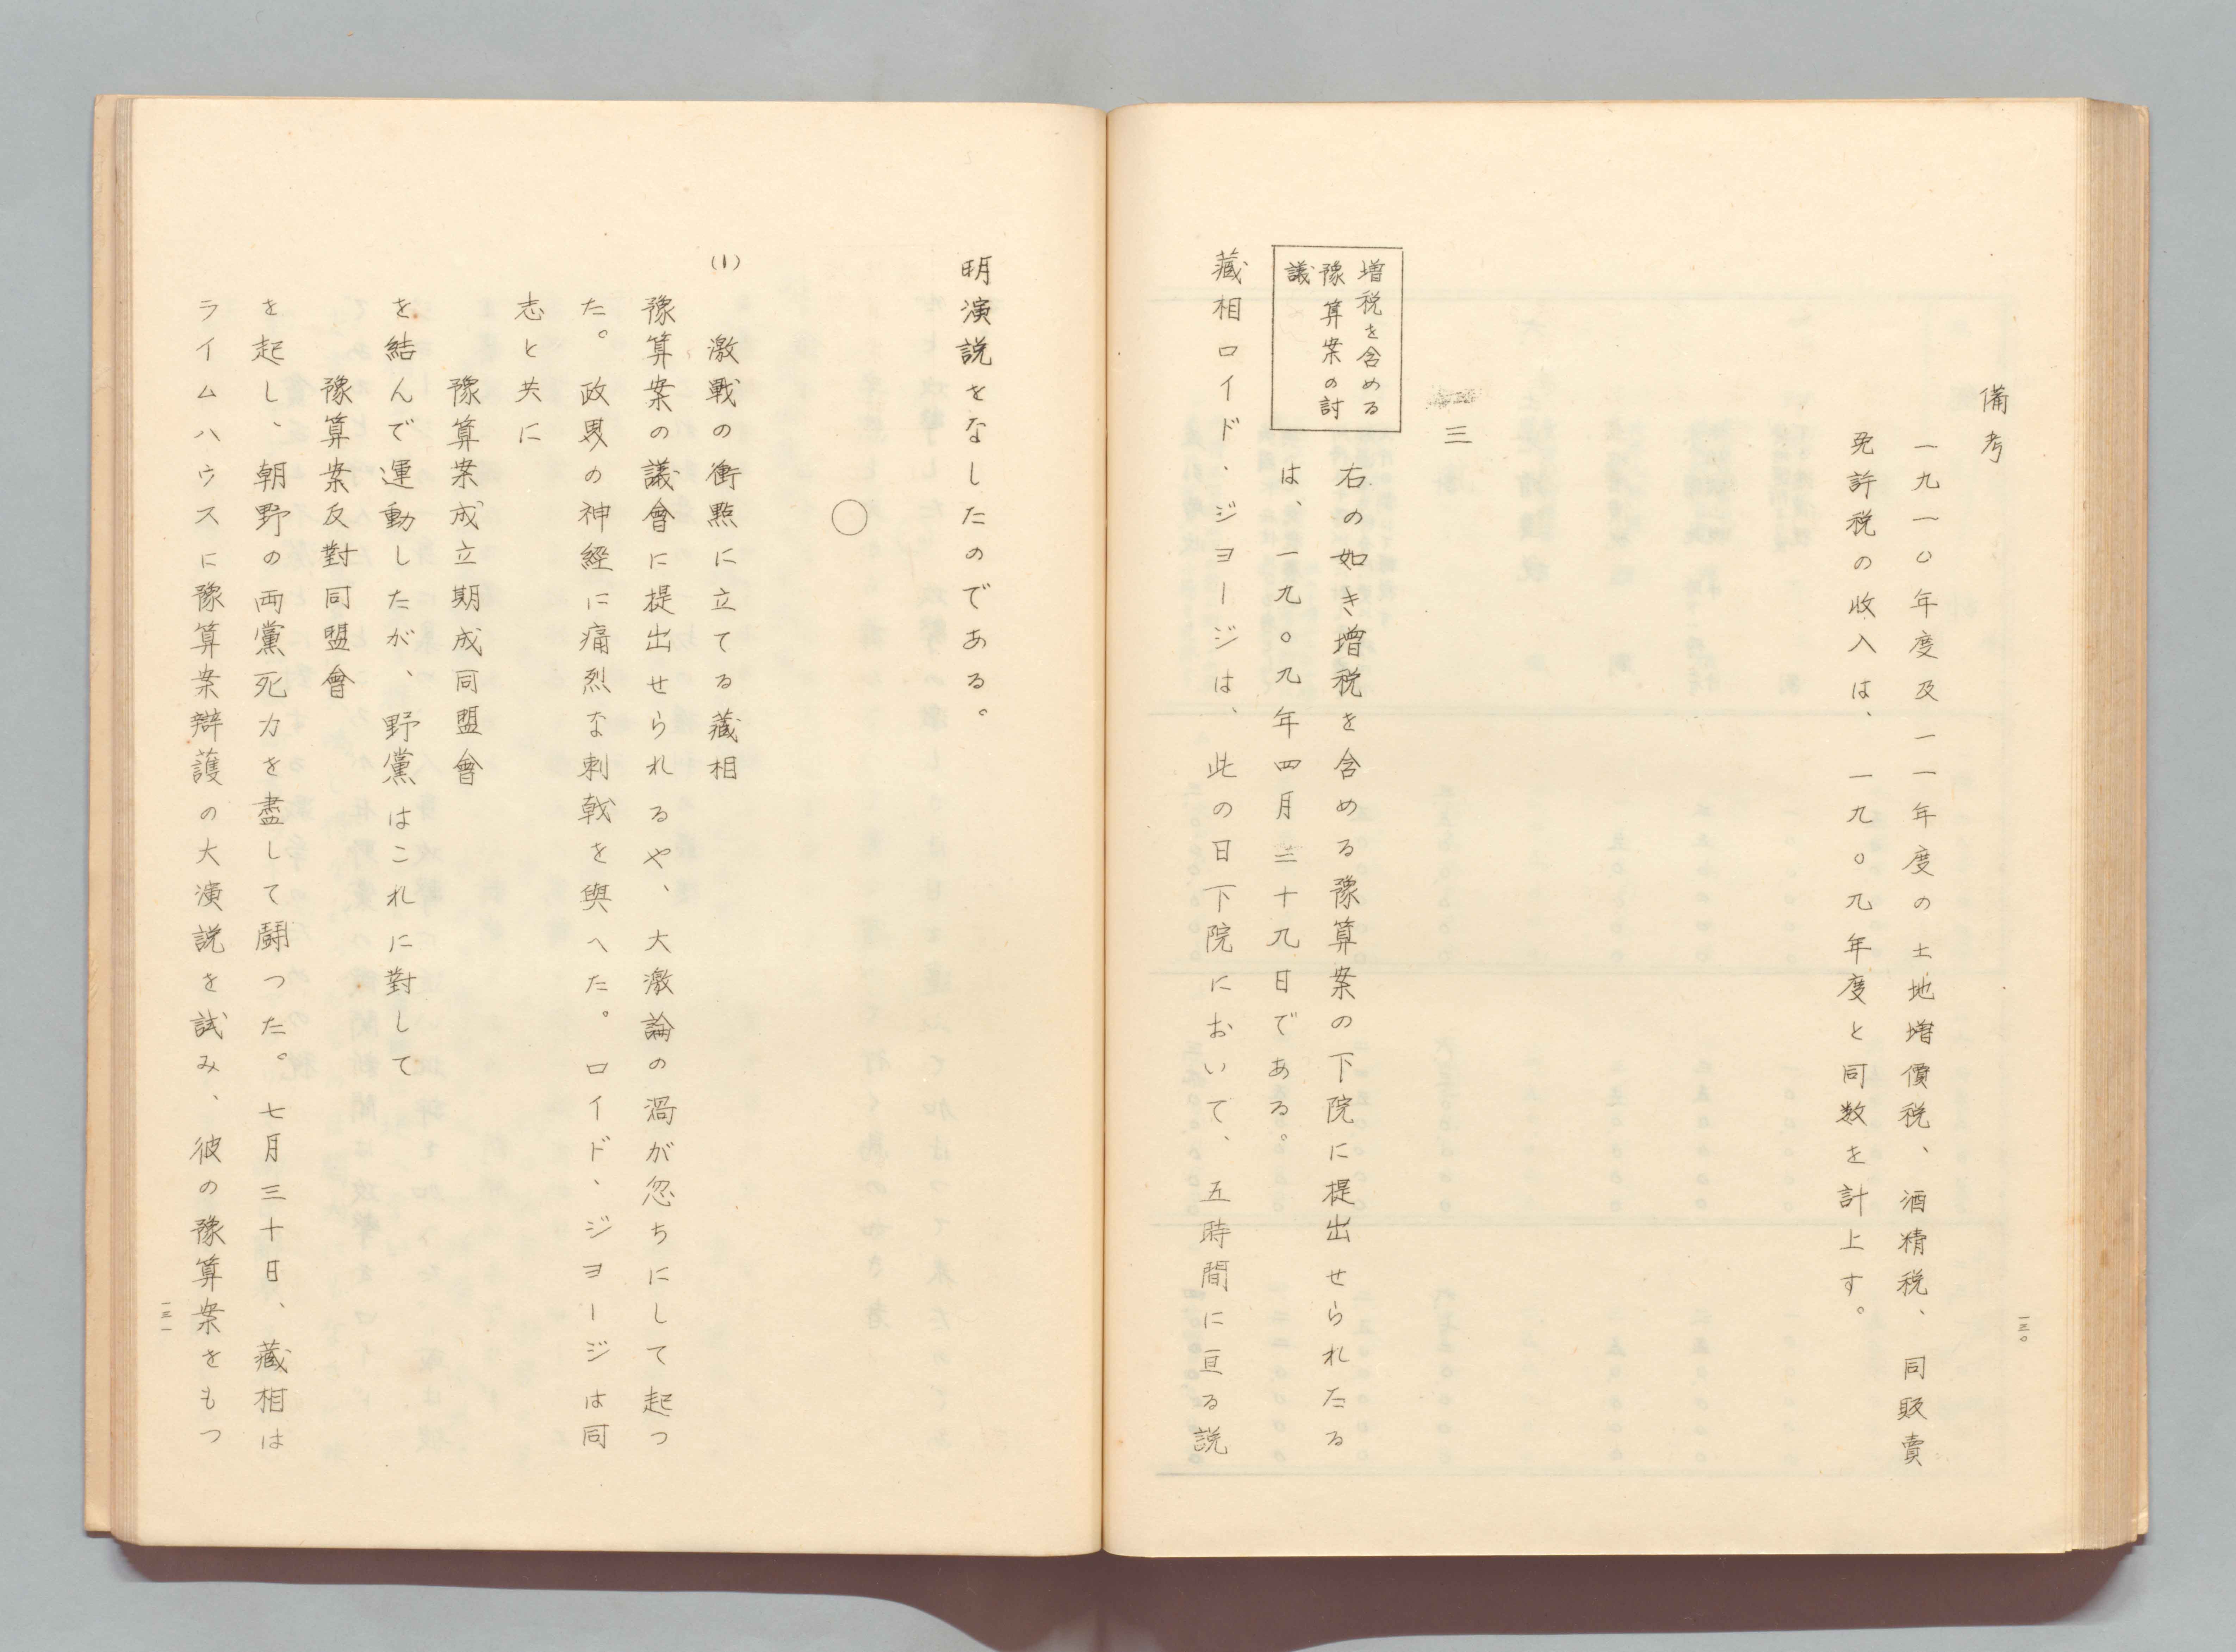 備考
一九一〇年度及一一年度の土地増價税、酒精税、同販賣
免許税の收入は、一九〇九年度と同数を計上す。
三
増税を含める
豫算案の討
議
右の如き増税を含める豫算案の下院に提出せられたる
は、一九〇九年四月二十九日である。
藏相ロイド、ジョージは、此の日下院において、五時間に亘る説
一三〇
明演説をなしたのである。
〇
(1)
激戰の衝點に立てる藏相
豫算案の議會に提出せられるや、大激論の渦が忽ちにして起つ
た。政界の神経に痛烈な刺戟を與へた。ロイド、ジョージは同
志と共に
豫算案成立期成同盟會
を結んで運動したが、野黨はこれに對して
豫算案反對同盟會
を起し、朝野の両黨死力を盡して鬪つた。七月三十日、藏相は
ライムハウスに豫算案辯護の大演説を試み、彼の豫算案をもつ
一三一